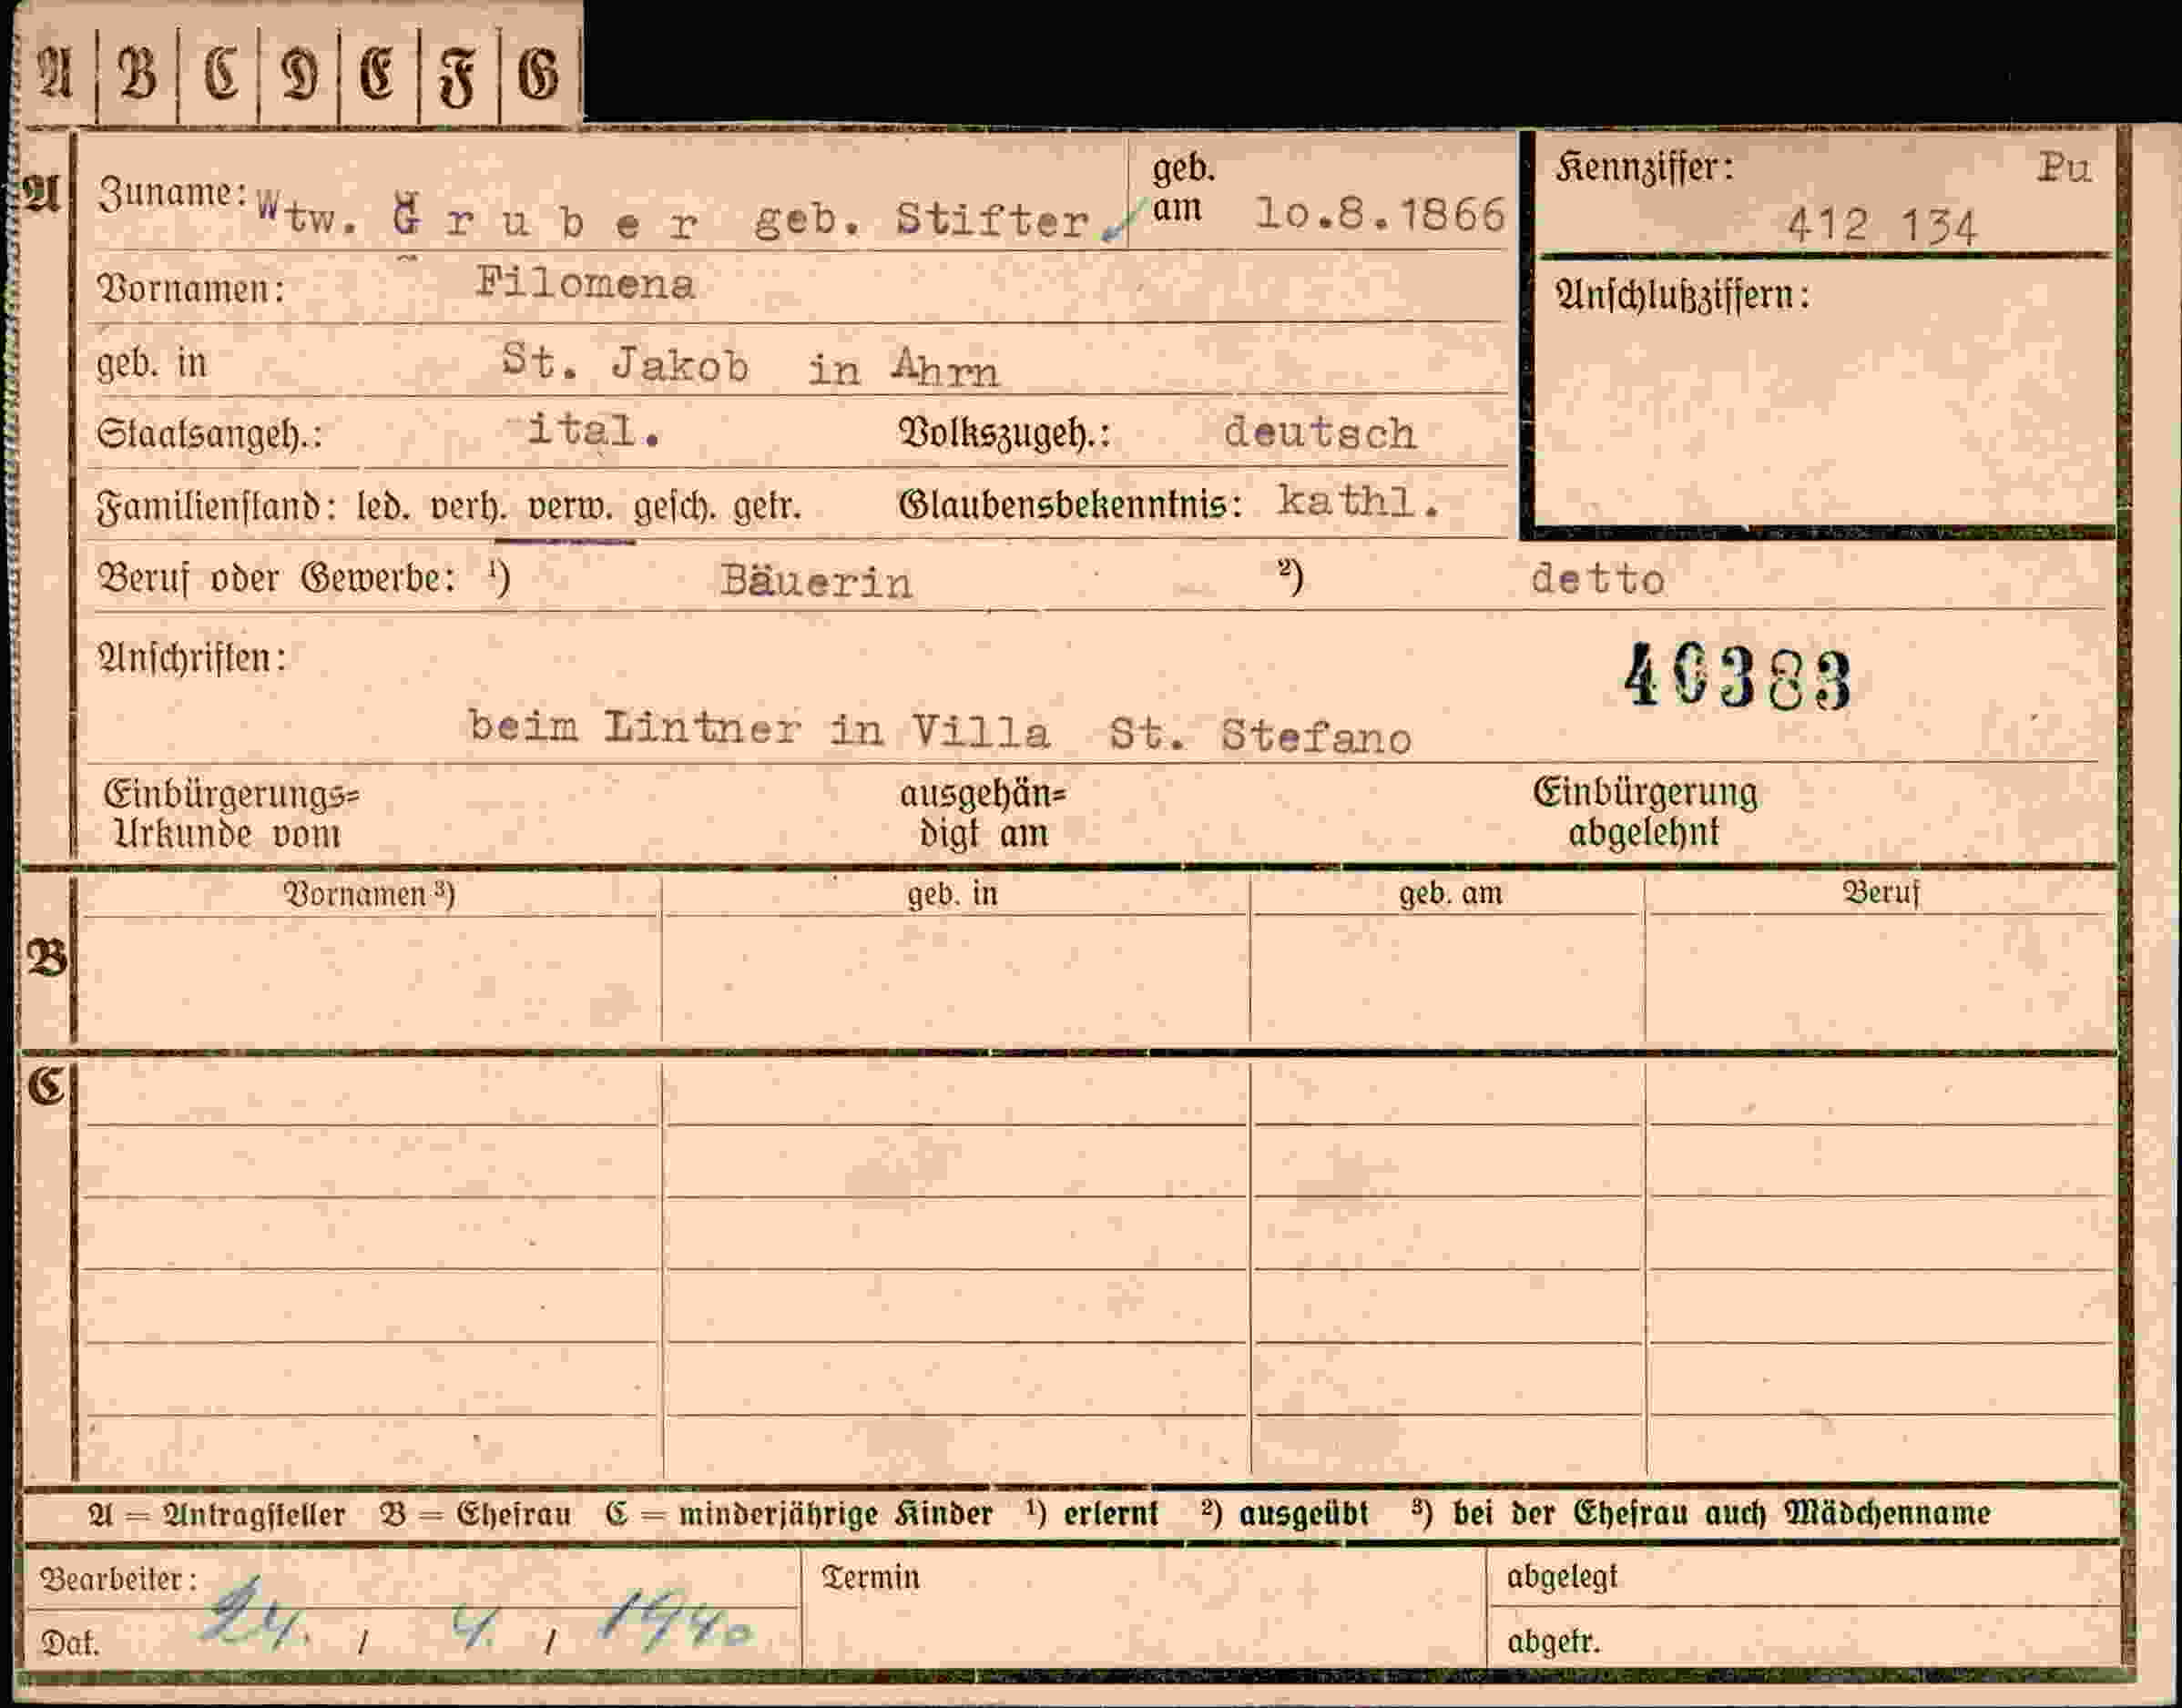 A B C D E F G
A Zuname: Wtw. G r u b e r geb. Stifter geb. am 10.8.1866
Kennziffer: Pu
412 134
Vornamen: Filomena
Anschlußziffern:
geb. in St. Jakob in Ahrn
Staatsangeh.: ital. Volkszugeh.: deutsch
Familienstand: led. verh. verw. gesch. getr. Glaubensbekenntnis: kathl.
Beruf oder Gewerbe: ¹) Bäuerin ²) detto
Anschriften: 40383
beim Lintner in Villa St. Stefano
Einbürgerungs= ausgehän= Einbürgerung
Urkunde vom digt am abgelehnt
Vornamen ³) geb. in geb. am Beruf
B
C
A = Antragsteller B = Ehefrau C = minderjährige Kinder ¹) erlernt ²) ausgeübt ³) bei der Ehefrau auch Mädchenname
Bearbeiter: Termin abgelegt
Dat. 24. / 4. / 1940 abgetr.